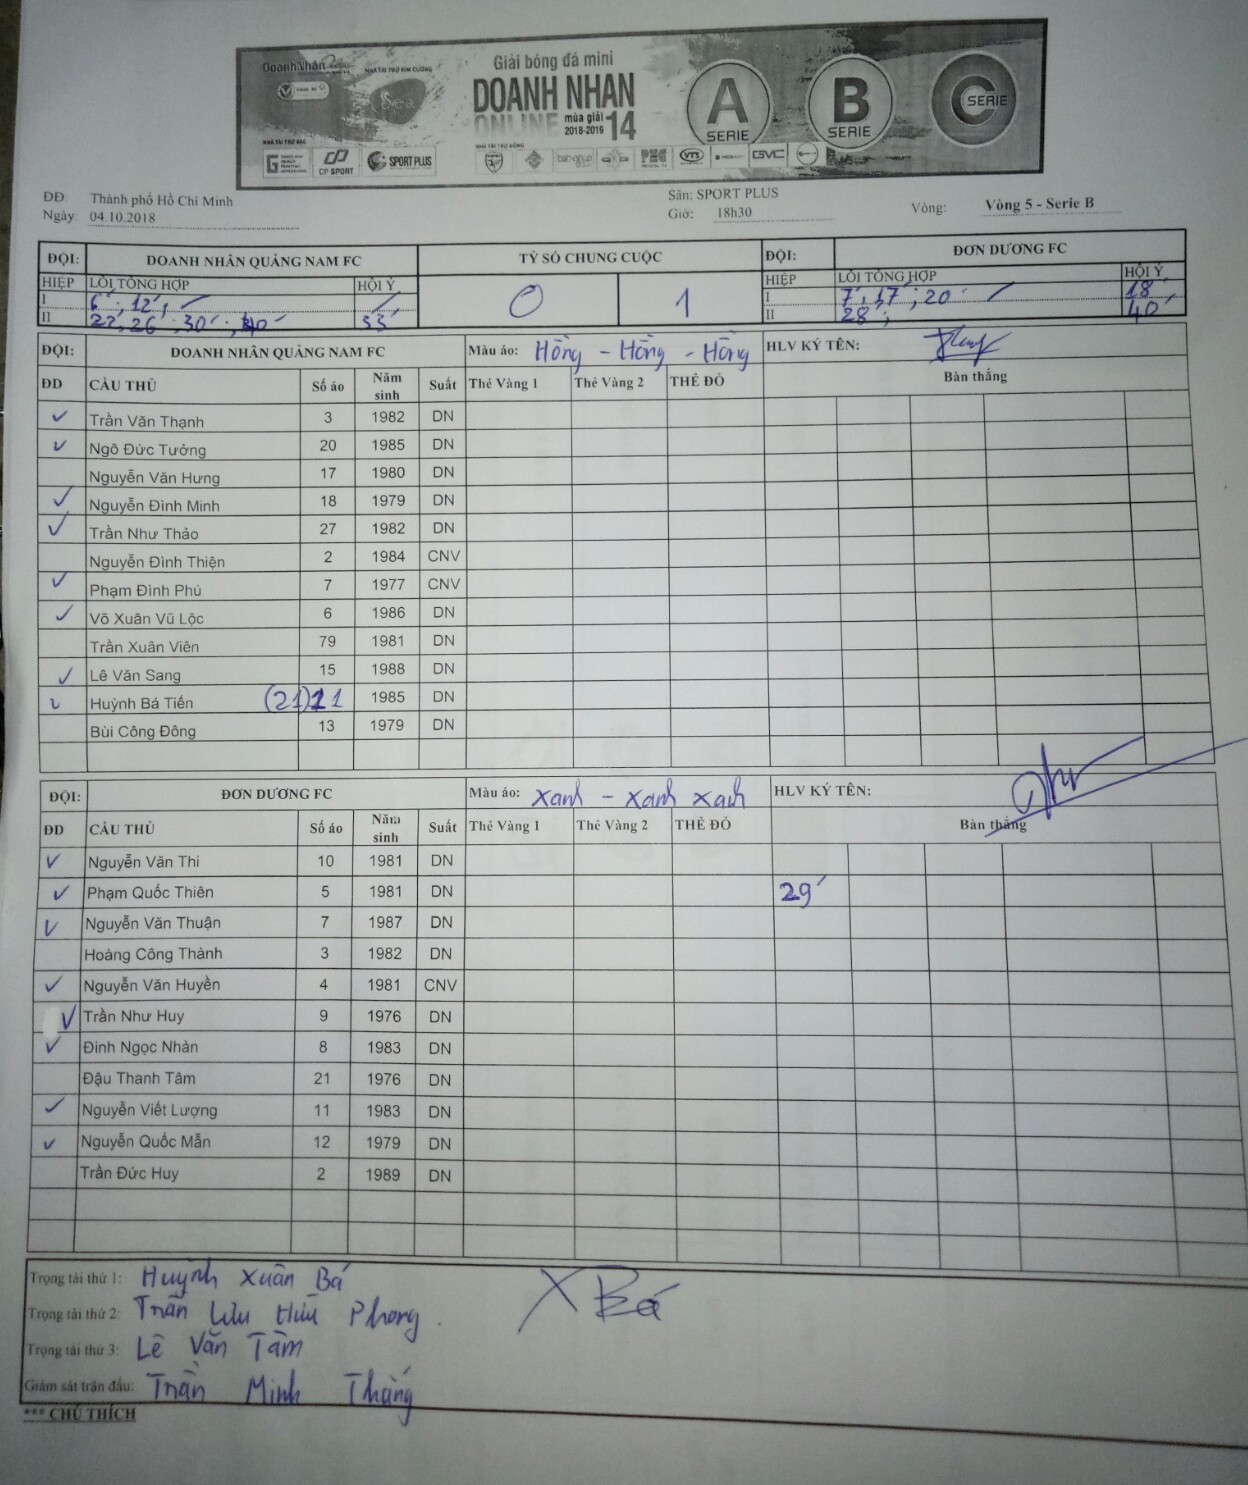 DoanhNhan
NHÀ TÀI TRỢ KIM CƯƠNG
Sea
Giải bóng đá mini
DOANH NHAN
ONLINE mùa giải 14
2018-2019
A SERIE
B SERIE
C SERIE
NHÀ TÀI TRỢ BẠC
NHÀ TÀI TRỢ ĐỒNG
CP SPORT
SPORT PLUS
VTS
GVC
ĐĐ: Thành phố Hồ Chí Minh
Sân: SPORT PLUS
Ngày 04.10.2018
Giờ: 18h30
Vòng: Vòng 5 - Serie B
ĐỘI: DOANH NHÂN QUẢNG NAM FC TỶ SỐ CHUNG CUỘC ĐỘI: ĐƠN DƯƠNG FC
HIỆP LỖI TỔNG HỢP HỘI Ý 0 1 HIỆP LỖI TỔNG HỢP HỘI Ý
I 6', 12', I 7', 17', 20' 18'
II 22', 26', 30', 40' 33' II 28'; 40'
ĐỘI: DOANH NHÂN QUẢNG NAM FC Màu áo: Hồng - Hồng - Hồng HLV KÝ TÊN:
ĐD CẦU THỦ Số áo Năm sinh Suất Thẻ Vàng 1 Thẻ Vàng 2 THẺ ĐỎ Bàn thắng
Trần Văn Thạnh 3 1982 DN
Ngô Đức Tưởng 20 1985 DN
Nguyễn Văn Hưng 17 1980 DN
Nguyễn Đình Minh 18 1979 DN
Trần Như Thảo 27 1982 DN
Nguyễn Đình Thiện 2 1984 CNV
Phạm Đình Phú 7 1977 CNV
Võ Xuân Vũ Lộc 6 1986 DN
Trần Xuân Viên 79 1981 DN
Lê Văn Sang 15 1988 DN
Huỳnh Bá Tiến (21) 21 1985 DN
Bùi Công Đông 13 1979 DN
ĐỘI: ĐƠN DƯƠNG FC Màu áo: Xanh - Xanh Xanh HLV KÝ TÊN:
ĐD CẦU THỦ Số áo Năm sinh Suất Thẻ Vàng 1 Thẻ Vàng 2 THẺ ĐỎ Bàn thắng
Nguyễn Văn Thi 10 1981 DN
Phạm Quốc Thiên 5 1981 DN 29'
Nguyễn Văn Thuận 7 1987 DN
Hoàng Công Thành 3 1982 DN
Nguyễn Văn Huyền 4 1981 CNV
Trần Như Huy 9 1976 DN
Đinh Ngọc Nhàn 8 1983 DN
Đậu Thanh Tâm 21 1976 DN
Nguyễn Viết Lượng 11 1983 DN
Nguyễn Quốc Mẫn 12 1979 DN
Trần Đức Huy 2 1989 DN
Trọng tài thứ 1: Huỳnh Xuân Bá
X Bá
Trọng tài thứ 2: Trần Lưu Hữu Phong.
Trọng tài thứ 3: Lê Văn Tâm
Giám sát trận đấu: Trần Minh Thắng
*** CHÚ THÍCH